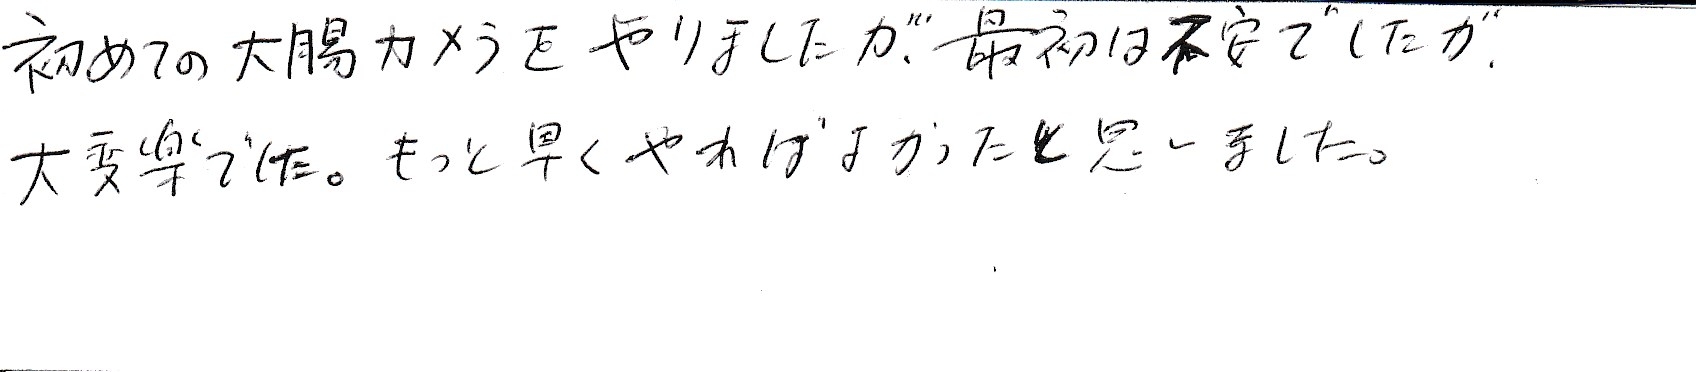 初めての大腸カメラをやりましたが、最初は不安でしたが、
大変楽でした。もっと早くやればよかったと思いました。